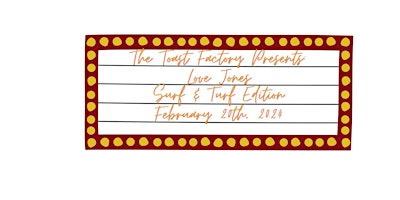 The Toast Factory Presents
Love Jones
Surf & Turf Edition
February 20th, 2024